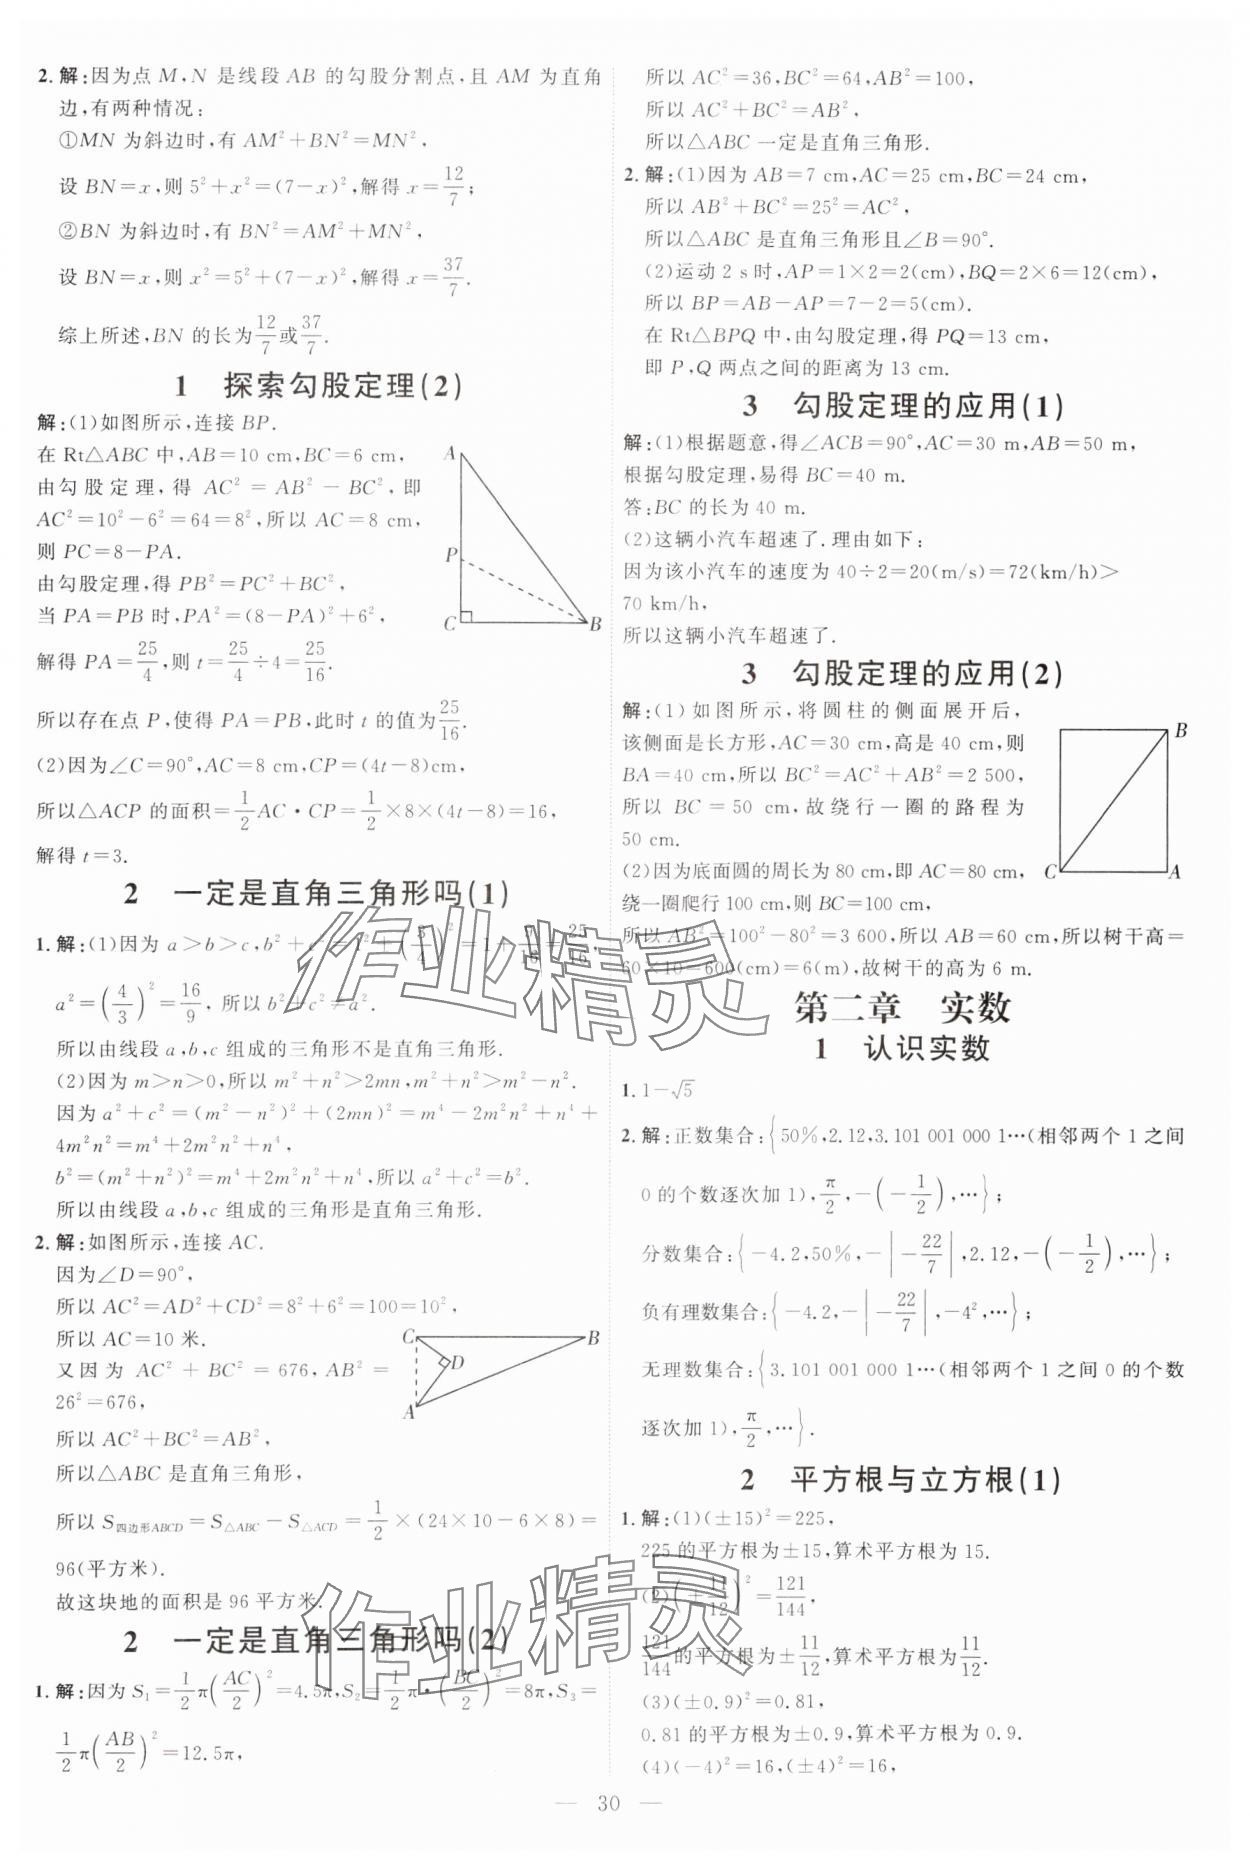 2. 解:因为点 M,N 是线段 AB 的勾股分割点,且 AM 为直角
边,有两种情况:
①MN 为斜边时,有 AM²+BN²=MN²,
设 BN=x,则 5²+x²=(7-x)²,解得 x=12/7;
②BN 为斜边时,有 BN²=AM²+MN²,
设 BN=x,则 x²=5²+(7-x)²,解得 x=37/7.
综上所述,BN 的长为12/7或37/7.
1 探索勾股定理(2)
解:(1)如图所示,连接 BP.
在 Rt△ABC 中,AB=10 cm,BC=6 cm,
由勾股定理,得 AC²=AB²-BC²,即
AC²=10²-6²=64=8²,所以 AC=8 cm,
则 PC=8-PA.
由勾股定理,得 PB²=PC²+BC²,
当 PA=PB 时,PA²=(8-PA)²+6²,
解得 PA=25/4,则 t=25/4÷4=25/16.
A
P
C
B
所以存在点 P,使得 PA=PB,此时 t 的值为25/16.
(2)因为∠C=90°,AC=8 cm,CP=(4t-8)cm,
所以△ACP 的面积=1/2AC·CP=1/2×8×(4t-8)=16,
解得 t=3.
2 一定是直角三角形吗(1)
1. 解:(1)因为 a>b>c,b²+c²=1²+(3/4)²=1+9/16=25/16,
a²=(4/3)²=16/9,所以 b²+c²≠a².
所以由线段 a,b,c 组成的三角形不是直角三角形.
(2)因为 m>n>0,所以 m²+n²>2mn,m²+n²>m²-n².
因为 a²+c²=(m²-n²)²+(2mn)²=m⁴-2m²n²+n⁴+
4m²n²=m⁴+2m²n²+n⁴,
b²=(m²+n²)²=m⁴+2m²n²+n⁴,所以 a²+c²=b².
所以由线段 a,b,c 组成的三角形是直角三角形.
2. 解:如图所示,连接 AC.
因为∠D=90°,
所以 AC²=AD²+CD²=8²+6²=100=10²,
所以 AC=10 米.
又因为 AC²+BC²=676,AB²=
26²=676,
所以 AC²+BC²=AB²,
所以△ABC 是直角三角形,
C
B
D
A
所以 S四边形ABCD=S△ABC-S△ACD=1/2×(24×10-6×8)=
96(平方米).
故这块地的面积是 96 平方米.
2 一定是直角三角形吗(2)
1. 解:因为 S₁=1/2π(AC/2)²=4.5π,S₂=1/2π·(BC/2)²=8π,S₃=
1/2π(AB/2)²=12.5π,
所以 AC²=36,BC²=64,AB²=100,
所以 AC²+BC²=AB²,
所以△ABC 一定是直角三角形.
2. 解:(1)因为 AB=7 cm,AC=25 cm,BC=24 cm,
所以 AB²+BC²=25²=AC²,
所以△ABC 是直角三角形且∠B=90°.
(2)运动 2 s 时,AP=1×2=2(cm),BQ=2×6=12(cm),
所以 BP=AB-AP=7-2=5(cm).
在 Rt△BPQ 中,由勾股定理,得 PQ=13 cm,
即 P,Q 两点之间的距离为 13 cm.
3 勾股定理的应用(1)
解:(1)根据题意,得∠ACB=90°,AC=30 m,AB=50 m,
根据勾股定理,易得 BC=40 m.
答:BC 的长为 40 m.
(2)这辆小汽车超速了.理由如下:
因为该小汽车的速度为 40÷2=20(m/s)=72(km/h)>
70 km/h,
所以这辆小汽车超速了.
3 勾股定理的应用(2)
解:(1)如图所示,将圆柱的侧面展开后,
该侧面是长方形,AC=30 cm,高是 40 cm,则
BA=40 cm,所以 BC²=AC²+AB²=2 500,
所以 BC=50 cm,故绕行一圈的路程为
50 cm.
(2)因为底面圆的周长为 80 cm,即 AC=80 cm,
绕一圈爬行 100 cm,则 BC=100 cm,
B
C
A
所以 AB²=100²-80²=3 600,所以 AB=60 cm,所以树干高=
60×10=600(cm)=6(m),故树干的高为 6 m.
第二章 实数
1 认识实数
1. 1-√5
2. 解:正数集合:{50%,2.12,3.101 001 000 1…(相邻两个 1 之间
0 的个数逐次加 1),π/2,-(-1/2),…};
分数集合:{-4.2,50%,-|-22/7|,2.12,-(-1/2),…};
负有理数集合:{-4.2,-|-22/7|,-4²,…};
无理数集合:{3.101 001 000 1…(相邻两个 1 之间 0 的个数
逐次加 1),π/2,…}.
2 平方根与立方根(1)
1. 解:(1)(±15)²=225,
225 的平方根为±15,算术平方根为 15.
(2)(±11/12)²=121/144,
121/144的平方根为±11/12,算术平方根为11/12.
(3)(±0.9)²=0.81,
0.81 的平方根为±0.9,算术平方根为 0.9.
(4)(-4)²=16,(±4)²=16,
— 30 —
作业精灵
作业精灵